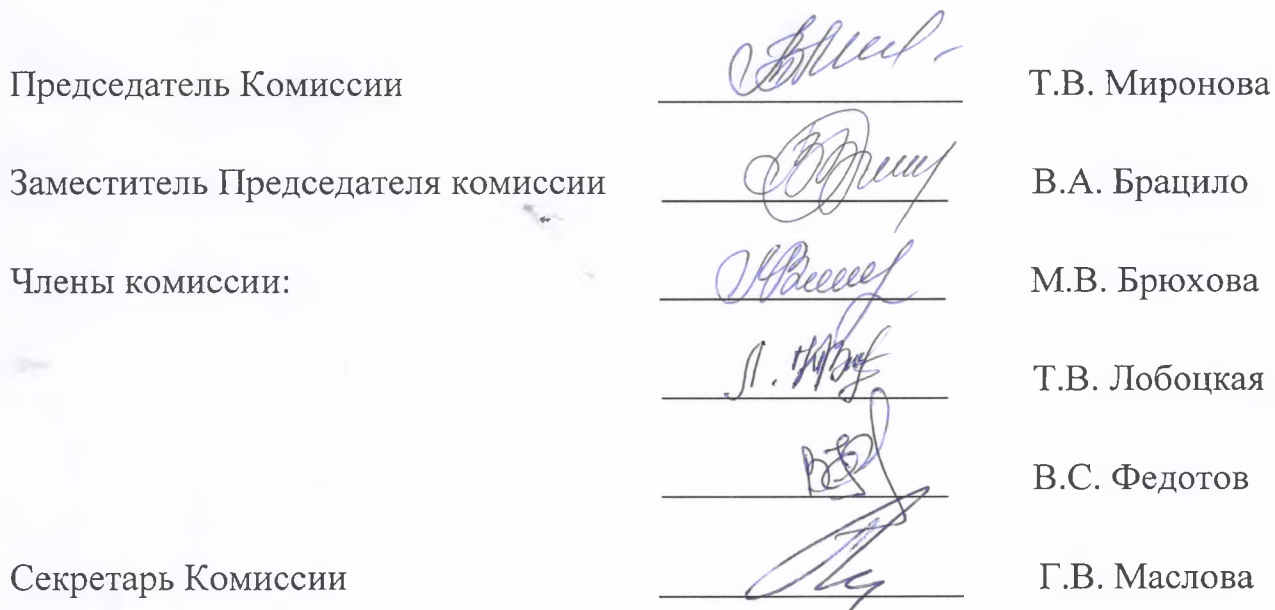 Председатель Комиссии Т.В. Миронова
Заместитель Председателя комиссии В.А. Брацило
Члены комиссии: М.В. Брюхова
Т.В. Лобоцкая
В.С. Федотов
Секретарь Комиссии Г.В. Маслова